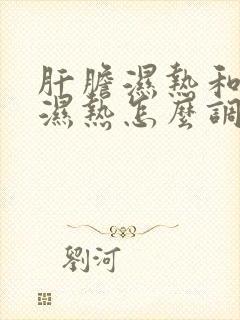 肝膽濕熱和
濕熱怎麼調
劉河